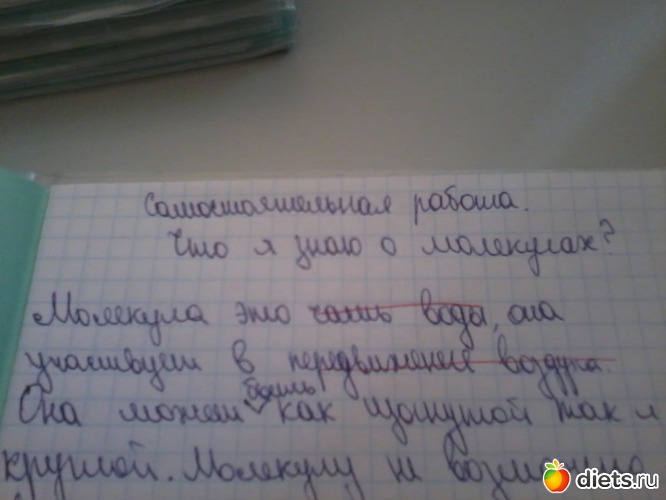 Самостоятельная работа.
Что я знаю о молекулах?
Молекула это часть воды, она
участвует в передвижение воздуха.
быть
Она может как щипутой так и
круглой. Молекулу не возможно
diets.ru